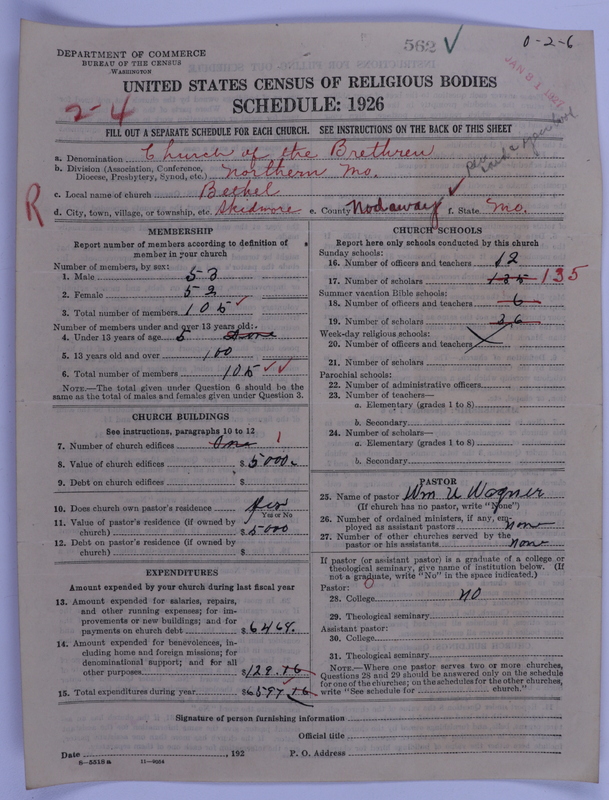 562 ✓
0-2-6
DEPARTMENT OF COMMERCE
BUREAU OF THE CENSUS
WASHINGTON
JAN 31 1927
UNITED STATES CENSUS OF RELIGIOUS BODIES
SCHEDULE: 1926
2-4
FILL OUT A SEPARATE SCHEDULE FOR EACH CHURCH. SEE INSTRUCTIONS ON THE BACK OF THIS SHEET
a. Denomination Church of the Brethren
b. Division (Association, Conference, Diocese, Presbytery, Synod, etc.) Northern Mo.
c. Local name of church Bethel
R
d. City, town, village, or township, etc. Skidmore e. County Nodaway f. State Mo.
MEMBERSHIP
Report number of members according to definition of member in your church
Number of members, by sex:
1. Male 53
2. Female 52
3. Total number of members 105
Number of members under and over 13 years old:
4. Under 13 years of age 5
5. 13 years old and over 100
6. Total number of members 105
NOTE.—The total given under Question 6 should be the same as the total of males and females given under Question 3.
CHURCH BUILDINGS
See instructions, paragraphs 10 to 12
7. Number of church edifices One 1
8. Value of church edifices $5000.
9. Debt on church edifices $
10. Does church own pastor's residence Yes
Yes or No
11. Value of pastor's residence (if owned by church) $5000
12. Debt on pastor's residence (if owned by church) $
EXPENDITURES
Amount expended by church during last fiscal year
13. Amount expended for salaries, repairs, and other running expenses; for improvements or new buildings; and for payments on church debt $6469.
14. Amount expended for benevolences, including home and foreign missions; for denominational support; and for all other purposes $128.16
15. Total expenditures during year $6597.16
CHURCH SCHOOLS
Report here only schools conducted by this church
Sunday schools:
16. Number of officers and teachers 12
17. Number of scholars 135 135
Summer vacation Bible schools:
18. Number of officers and teachers 6
19. Number of scholars 36
Week-day religious schools:
20. Number of officers and teachers
21. Number of scholars
Parochial schools:
22. Number of administrative officers
23. Number of teachers—
a. Elementary (grades 1 to 8)
b. Secondary
24. Number of scholars—
a. Elementary (grades 1 to 8)
b. Secondary
PASTOR
25. Name of pastor Wm U Wagner
(If church has no pastor, write "None")
26. Number of ordained ministers, if any, employed as assistant pastors None
27. Number of other churches served by the pastor or his assistants None
If pastor (or assistant pastor) is a graduate of a college or theological seminary, give name of institution below. (If not a graduate, write "No" in the space indicated.)
Pastor:
28. College NO
29. Theological seminary
Assistant pastor:
30. College
31. Theological seminary
NOTE.—Where one pastor serves two or more churches, Questions 28 and 29 should be answered only on the schedule for one of the churches; on the schedules for the other churches, write "See schedule for church."
Signature of person furnishing information
Official title
Date , 192 P. O. Address
8—5518a 11—9054